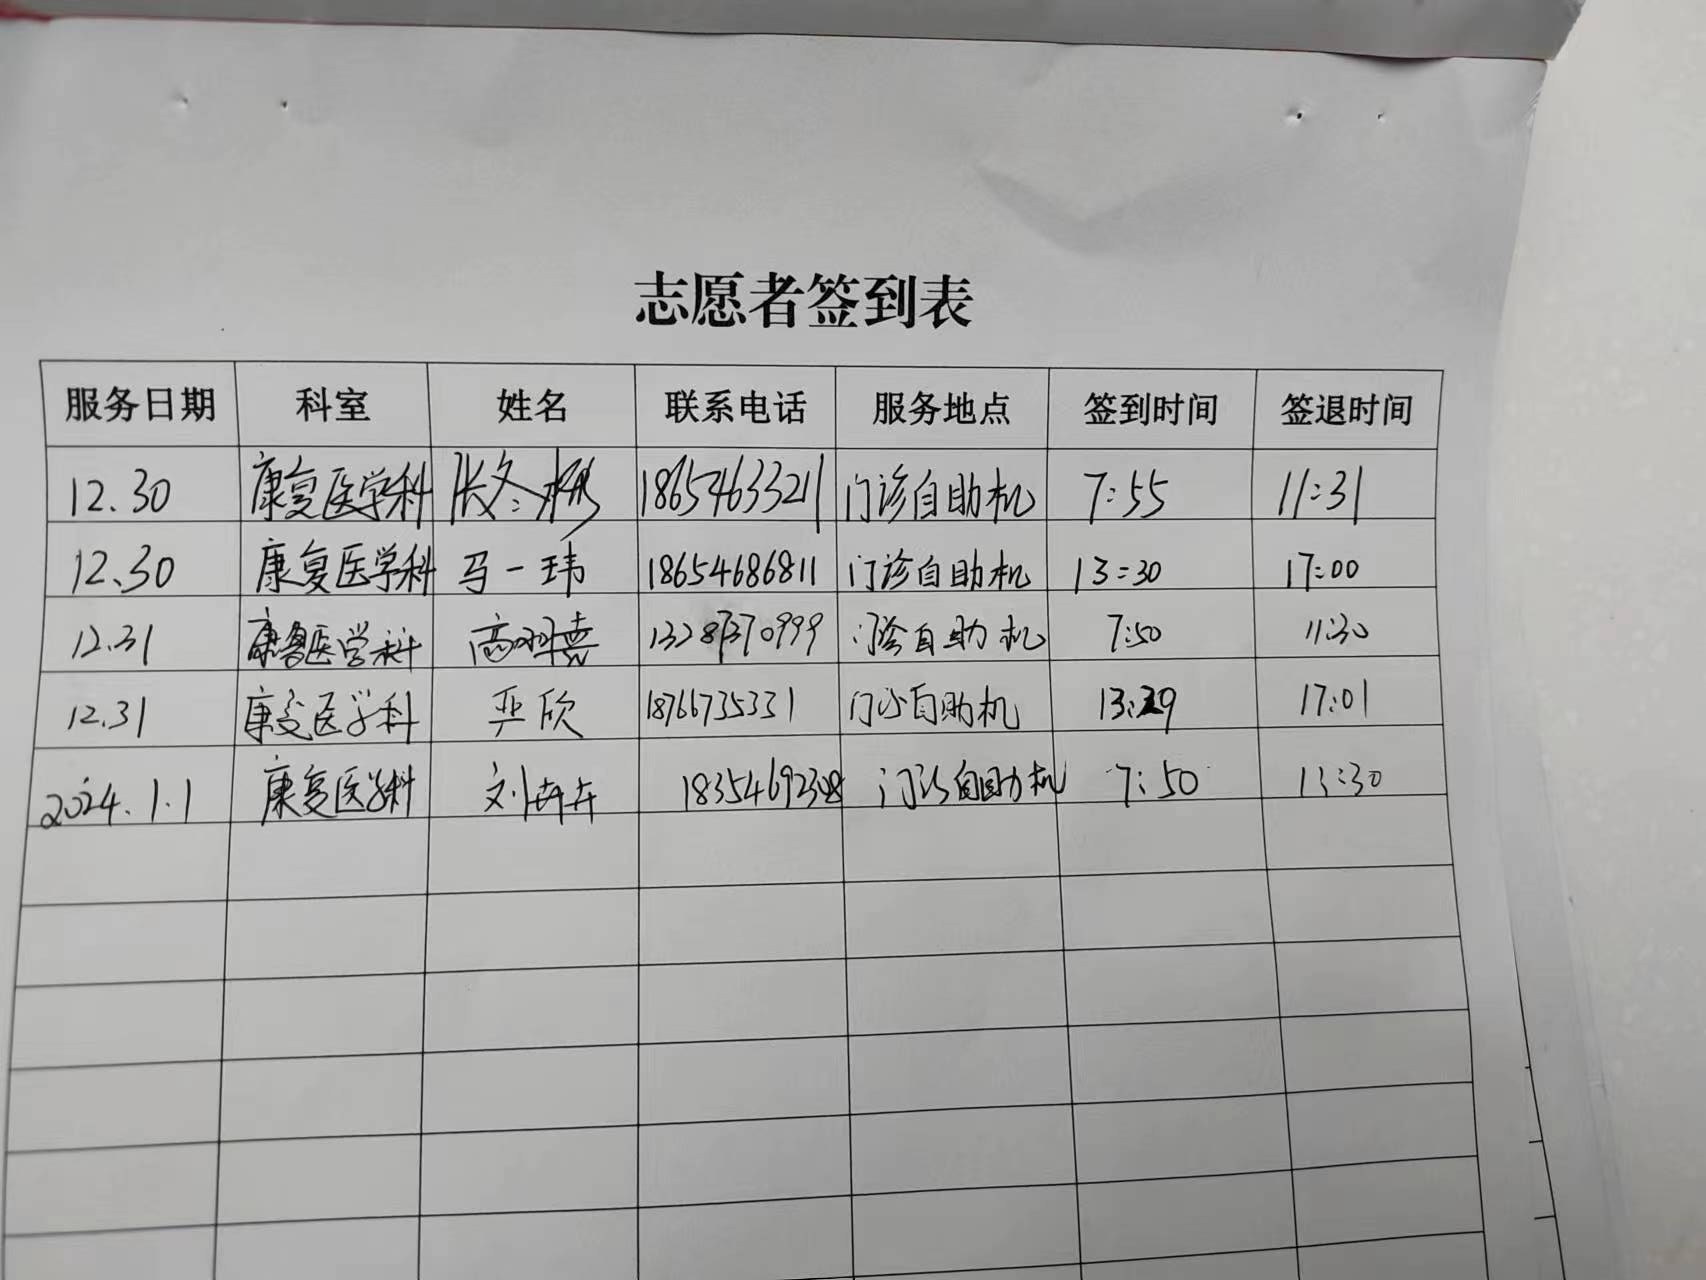 志愿者签到表
服务日期 科室 姓名 联系电话 服务地点 签到时间 签退时间
12.30 康复医学科 张冬梅 18654633211 门诊自助机 7:55 11:31
12.30 康复医学科 马一玮 18654686811 门诊自助机 13:30 17:00
12.31 康复医学科 高 13287370999 门诊自助机 7:50 11:30
12.31 康复医学科 严欣 18766735331 门诊自助机 13:29 17:01
2024.1.1 康复医学科 刘卉卉 门诊自助机 7:50 11:30